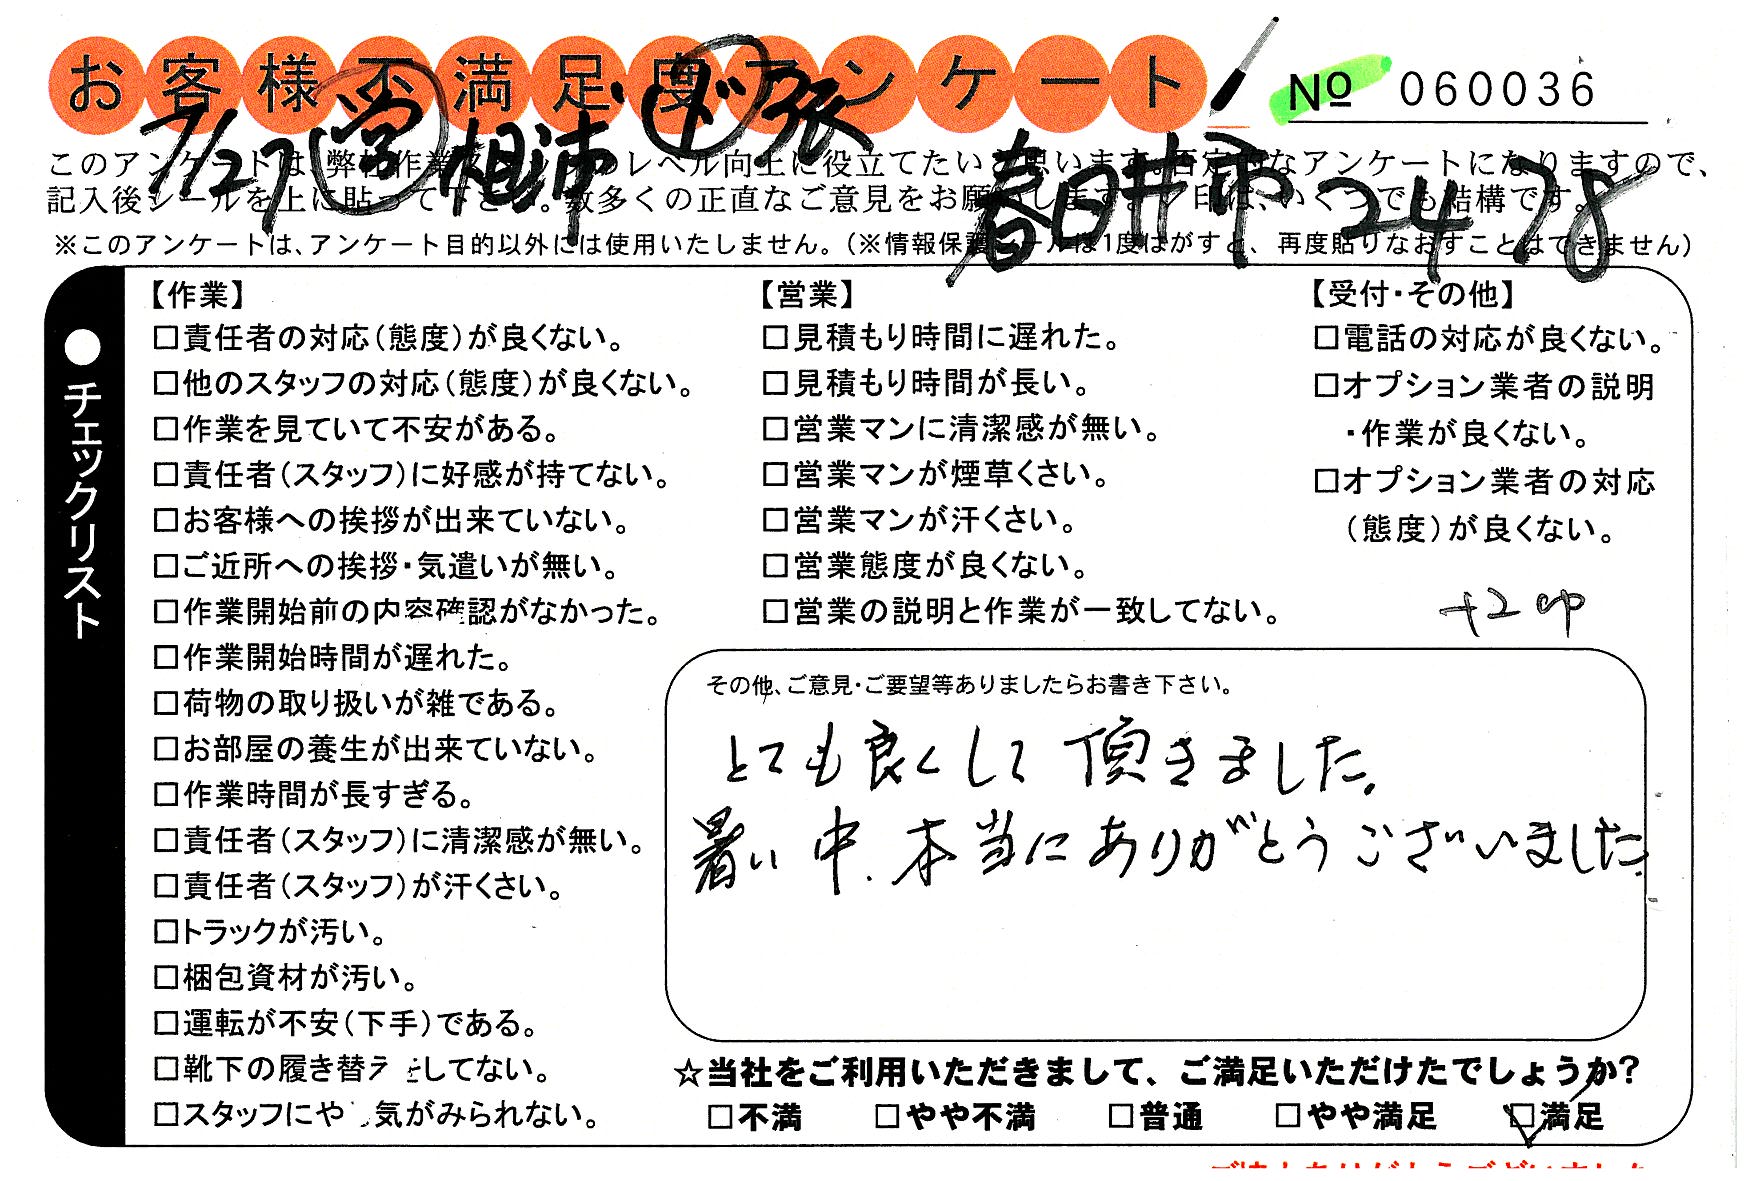 お客様不満足度アンケート
No 060036
7/27 営 相沖 ド 張
春日井市 2478
このアンケートは、弊社作業のレベル向上に役立てたいと思います。否定的なアンケートになりますので、
記入後シールを上に貼って下さい。数多くの正直なご意見をお願いします。✓印は、いくつでも結構です。
※このアンケートは、アンケート目的以外には使用いたしません。（※情報保護シールは1度はがすと、再度貼りなおすことはできません）
●チェックリスト
【作業】
□責任者の対応（態度）が良くない。
□他のスタッフの対応（態度）が良くない。
□作業を見ていて不安がある。
□責任者（スタッフ）に好感が持てない。
□お客様への挨拶が出来ていない。
□ご近所への挨拶・気遣いが無い。
□作業開始前の内容確認がなかった。
□作業開始時間が遅れた。
□荷物の取り扱いが雑である。
□お部屋の養生が出来ていない。
□作業時間が長すぎる。
□責任者（スタッフ）に清潔感が無い。
□責任者（スタッフ）が汗くさい。
□トラックが汚い。
□梱包資材が汚い。
□運転が不安（下手）である。
□靴下の履き替えをしてない。
□スタッフにやる気がみられない。
【営業】
□見積もり時間に遅れた。
□見積もり時間が長い。
□営業マンに清潔感が無い。
□営業マンが煙草くさい。
□営業マンが汗くさい。
□営業態度が良くない。
□営業の説明と作業が一致してない。
【受付・その他】
□電話の対応が良くない。
□オプション業者の説明
・作業が良くない。
□オプション業者の対応
（態度）が良くない。
+2up
その他、ご意見・ご要望等ありましたらお書き下さい。
とても良くして頂きました。
暑い中、本当にありがとうございました。
☆当社をご利用いただきまして、ご満足いただけたでしょうか？
□不満 □やや不満 □普通 □やや満足 ☑満足